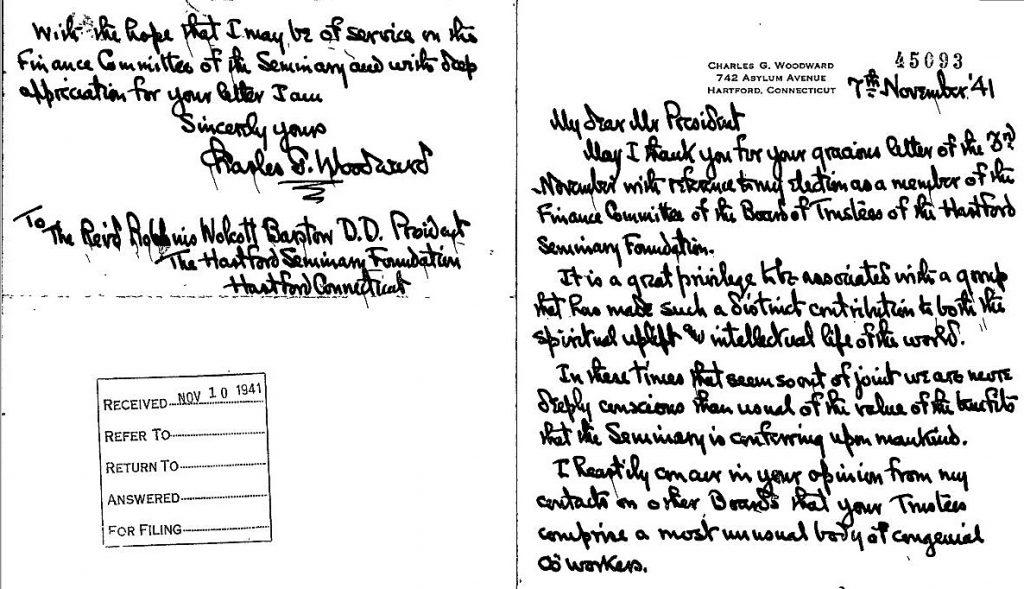 CHARLES G. WOODWARD
742 ASYLUM AVENUE
HARTFORD, CONNECTICUT
45093
7th November '41
My dear Mr President
May I thank you for your gracious letter of the 3rd
November with reference to my election as a member of the
Finance Committee of the Board of Trustees of the Hartford
Seminary Foundation.
It is a great privilege to be associated with a group
that has made such a distinct contribution to both the
spiritual uplift & intellectual life of the world.
In these times that seem so out of joint we are more
deeply conscious than usual of the value of the benefits
that the Seminary is conferring upon mankind.
I heartily concur in your opinion from my
contacts on other Boards that your Trustees
comprise a most unusual body of congenial
co workers.
With the hope that I may be of service on the
Finance Committee of the Seminary and with deep
appreciation for your letter I am
Sincerely yours
Charles G. Woodward
To
The Rev'd Robbins Wolcott Barstow D.D. President
The Hartford Seminary Foundation
Hartford Connecticut
RECEIVED NOV 10 1941
REFER TO
RETURN TO
ANSWERED
FOR FILING